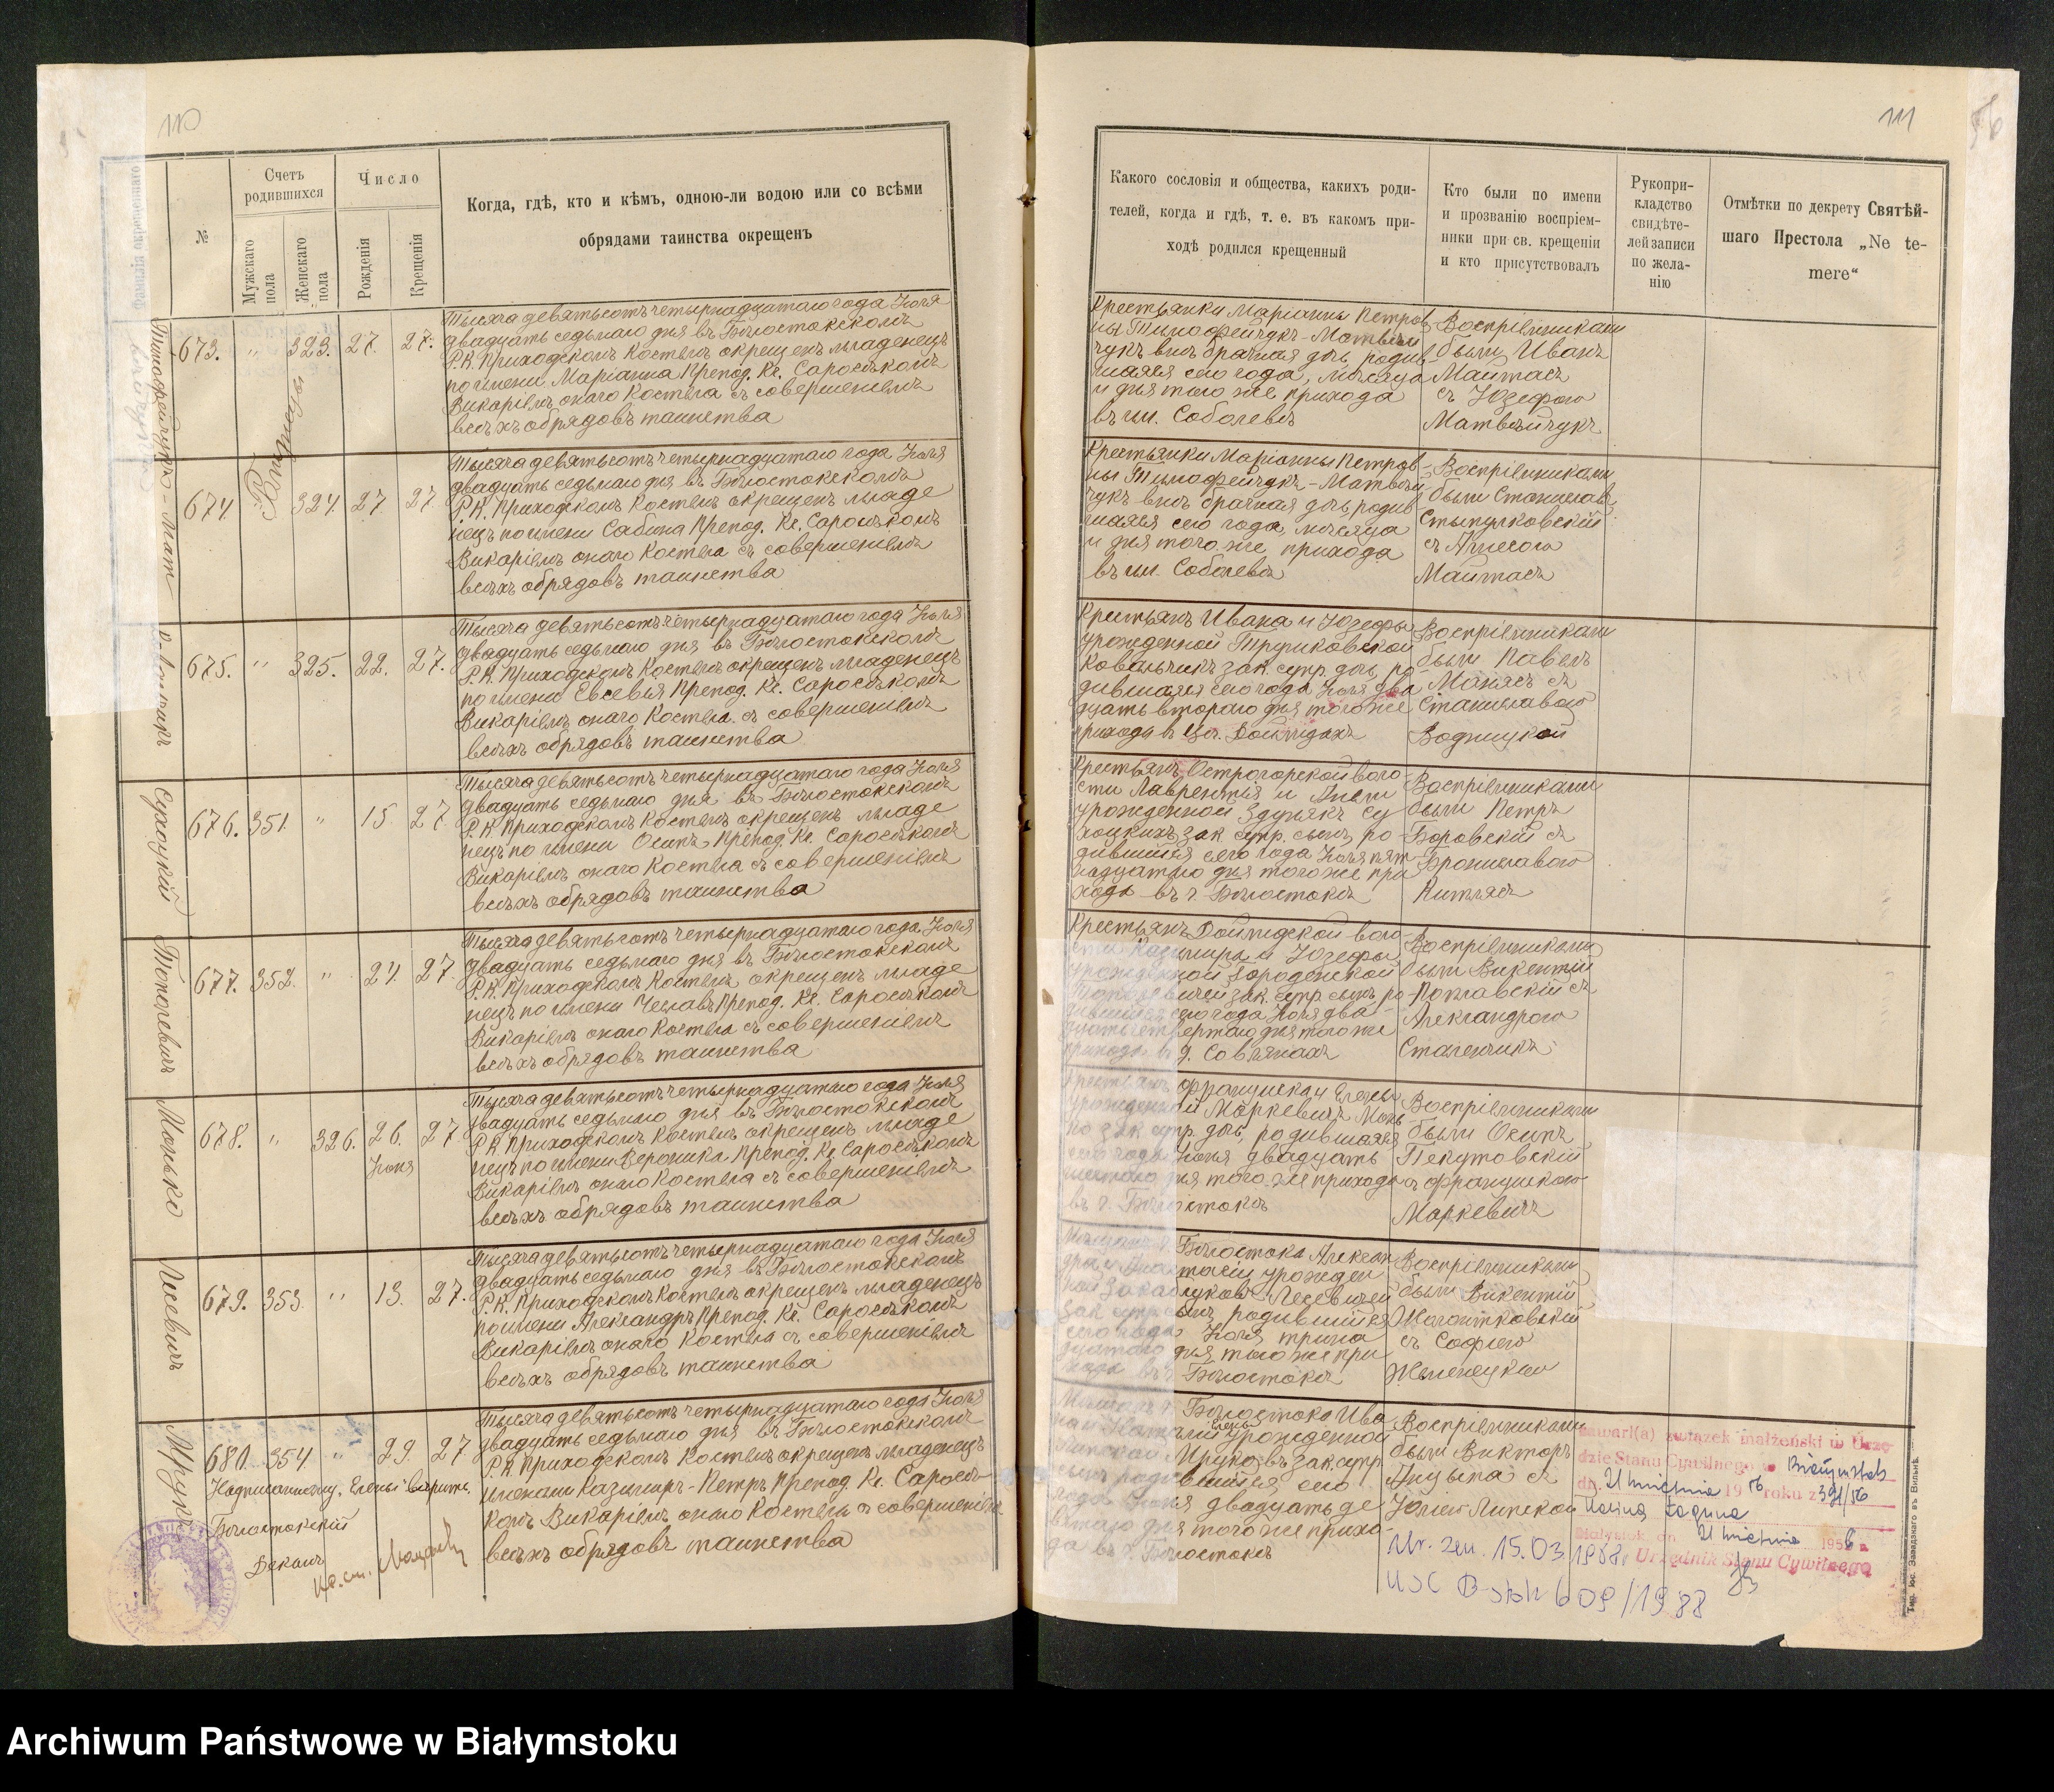 110
№
Счетъ
родившихся
Мужскаго
пола
Женскаго
пола
Число
Рожденія
Крещенія
Когда, гдѣ, кто и кѣмъ, одною-ли водою или со всѣми
обрядами таинства окрещенъ
Тимофейчукъ-Мат
673. " 323. 27. 27.
Тысяча девятьсотъ четырнадцатаго года Іюля
двадцать седьмаго дня въ Бѣлостокскомъ
Р.К. Приходскомъ Костелѣ окрещенъ младенецъ
по имени Маріанна Препод. Кс. Саросѣкомъ
Викаріемъ онаго Костела съ совершеніемъ
всѣхъ обрядовъ таинства
674. 324. 27. 27.
Тысяча девятьсотъ четырнадцатаго года Іюля
двадцать седьмаго дня въ Бѣлостокскомъ
Р.К. Приходскомъ Костелѣ окрещенъ младе
нецъ по имени Сабина Препод. Кс. Саросѣкомъ
Викаріемъ онаго Костела съ совершеніемъ
всѣхъ обрядовъ таинства
675. " 325. 22. 27.
Тысяча девятьсотъ четырнадцатаго года Іюля
двадцать седьмаго дня въ Бѣлостокскомъ
Р.К. Приходскомъ Костелѣ окрещенъ младенецъ
по имени Евсевія Препод. Кс. Саросѣкомъ
Викаріемъ онаго Костела съ совершеніемъ
всѣхъ обрядовъ таинства
Сухоцкій
676. 351. " 15 27
Тысяча девятьсотъ четырнадцатаго года Іюля
двадцать седьмаго дня въ Бѣлостокскомъ
Р.К. Приходскомъ Костелѣ окрещенъ младе
нецъ по имени Осипъ Препод. Кс. Саросѣкомъ
Викаріемъ онаго Костела съ совершеніемъ
всѣхъ обрядовъ таинства
Тополевичъ
677. 352. " 24. 27.
Тысяча девятьсотъ четырнадцатаго года Іюля
двадцать седьмаго дня въ Бѣлостокскомъ
Р.К. Приходскомъ Костелѣ окрещенъ младе
нецъ по имени Чеславъ Препод. Кс. Саросѣкомъ
Викаріемъ онаго Костела съ совершеніемъ
всѣхъ обрядовъ таинства
678. " 326. 26. 27.
Іюня
Тысяча девятьсотъ четырнадцатаго года Іюля
двадцать седьмаго дня въ Бѣлостокскомъ
Р.К. Приходскомъ Костелѣ окрещенъ младе
нецъ по имени Вероника Препод. Кс. Саросѣкомъ
Викаріемъ онаго Костела съ совершеніемъ
всѣхъ обрядовъ таинства
Лисевичъ
679. 353. " 13. 27.
Тысяча девятьсотъ четырнадцатаго года Іюля
двадцать седьмаго дня въ Бѣлостокскомъ
Р.К. Приходскомъ Костелѣ окрещенъ младенецъ
по имени Александръ Препод. Кс. Саросѣкомъ
Викаріемъ онаго Костела съ совершеніемъ
всѣхъ обрядовъ таинства
Мрукъ
680. 354. " 29. 27
Тысяча девятьсотъ четырнадцатаго года Іюля
двадцать седьмаго дня въ Бѣлостокскомъ
Р.К. Приходскомъ Костелѣ окрещенъ младенецъ
именами Казимиръ-Петръ Препод. Кс. Саросѣ-
комъ Викаріемъ онаго Костела съ совершеніемъ
всѣхъ обрядовъ таинства
Надписанному "Елены" вѣрить.
Бѣлостокскій
Деканъ
111
Какого сословія и общества, какихъ роди-
телей, когда и гдѣ, т. е. въ какомъ при-
ходѣ родился крещенный
Кто были по имени
и прозванію воспріем-
ники при св. крещеніи
и кто присутствовалъ
Рукопри-
кладство
свидѣте-
лей записи
по жела-
нію
Отмѣтки по декрету Святѣй-
шаго Престола „Ne te-
mere“
Крестьянки Маріанны Петров
ны Тимофейчукъ-Матвѣй
чукъ внѣ брачная дочь родив
шаяся сего года, мѣсяца
и дня того же прихода
въ им. Соболевѣ
Воспріемниками
были Иванъ
Съ Юзефою
Матвѣйчукъ
Крестьянки Маріанны Петров
ны Тимофейчукъ-Матвѣй
чукъ внѣ брачная дочь родив
шаяся сего года, мѣсяца
и дня того же прихода
въ им. Соболевѣ
Воспріемниками
были Станиславъ
Стыпулковскій
съ
Крестьянъ Ивана и Юзефы
урожденной Трусковской
Ковальчикъ зак. супр. дочь, ро
дившаяся сего года Іюля два
дцать втораго дня того же
прихода въ Дойлидахъ
Воспріемниками
были Павелъ
съ
Станиславою
Водницкой
Крестьянъ Острогорской воло
сти Лаврентія и
урожденной Здунякъ Су
хоцкихъ зак. супр. сынъ, ро
дившійся сего года Іюля пят
надцатаго дня того же при
хода въ г. Бѣлостокѣ
Воспріемниками
были Петръ
Боровскій съ
Брониславою
Крестьянъ Дойлидской воло
сти Казимира и Юзефы
урожденной Городенской
Тополевичей зак. супр. сынъ ро
дившійся сего года Іюля два
дцать четвертаго дня того же
прихода въ д.
Воспріемниками
были Викентій
съ
Александрою
Крестьянъ Француска и Елены
урожденной Маркевичъ
зак. супр. дочь, родившаяся
сего года Іюня двадцать
шестаго дня того же прихода
въ г. Бѣлостокѣ
Воспріемниками
были Осипъ
Пекутовскій
съ
Маркевичъ
Бѣлостока Алексан
дра и Анастасіи урожден
ной Лисевичей
зак. супр. сынъ, родившійся
сего года Іюля трина
дцатаго дня того же при
хода въ г. Бѣлостокѣ
Воспріемниками
были Викентій
съ Софіею
Бѣлостока Ива
на и урожденной
Елены
Липской Мруковъ зак. супр.
сынъ родившійся сего
года Іюня двадцать де
вятаго дня того же прихо
да въ г. Бѣлостокѣ
Воспріемниками
были Викторъ
съ
Юліею Липской
zawarł(a) związek małżeński w Urzę-
dzie Stanu Cywilnego w Białymstoku
dn. 21 kwietnia 1956 roku z 391/56
Białystok, dn. 21 kwietnia 1956 r.
Urzędnik Stanu Cywilnego
Ur. zm. 15.03.1988r
USC B-stok 609/1988
Тип. Іос. Завадзкаго въ Вильнѣ.
Archiwum Państwowe w Białymstoku